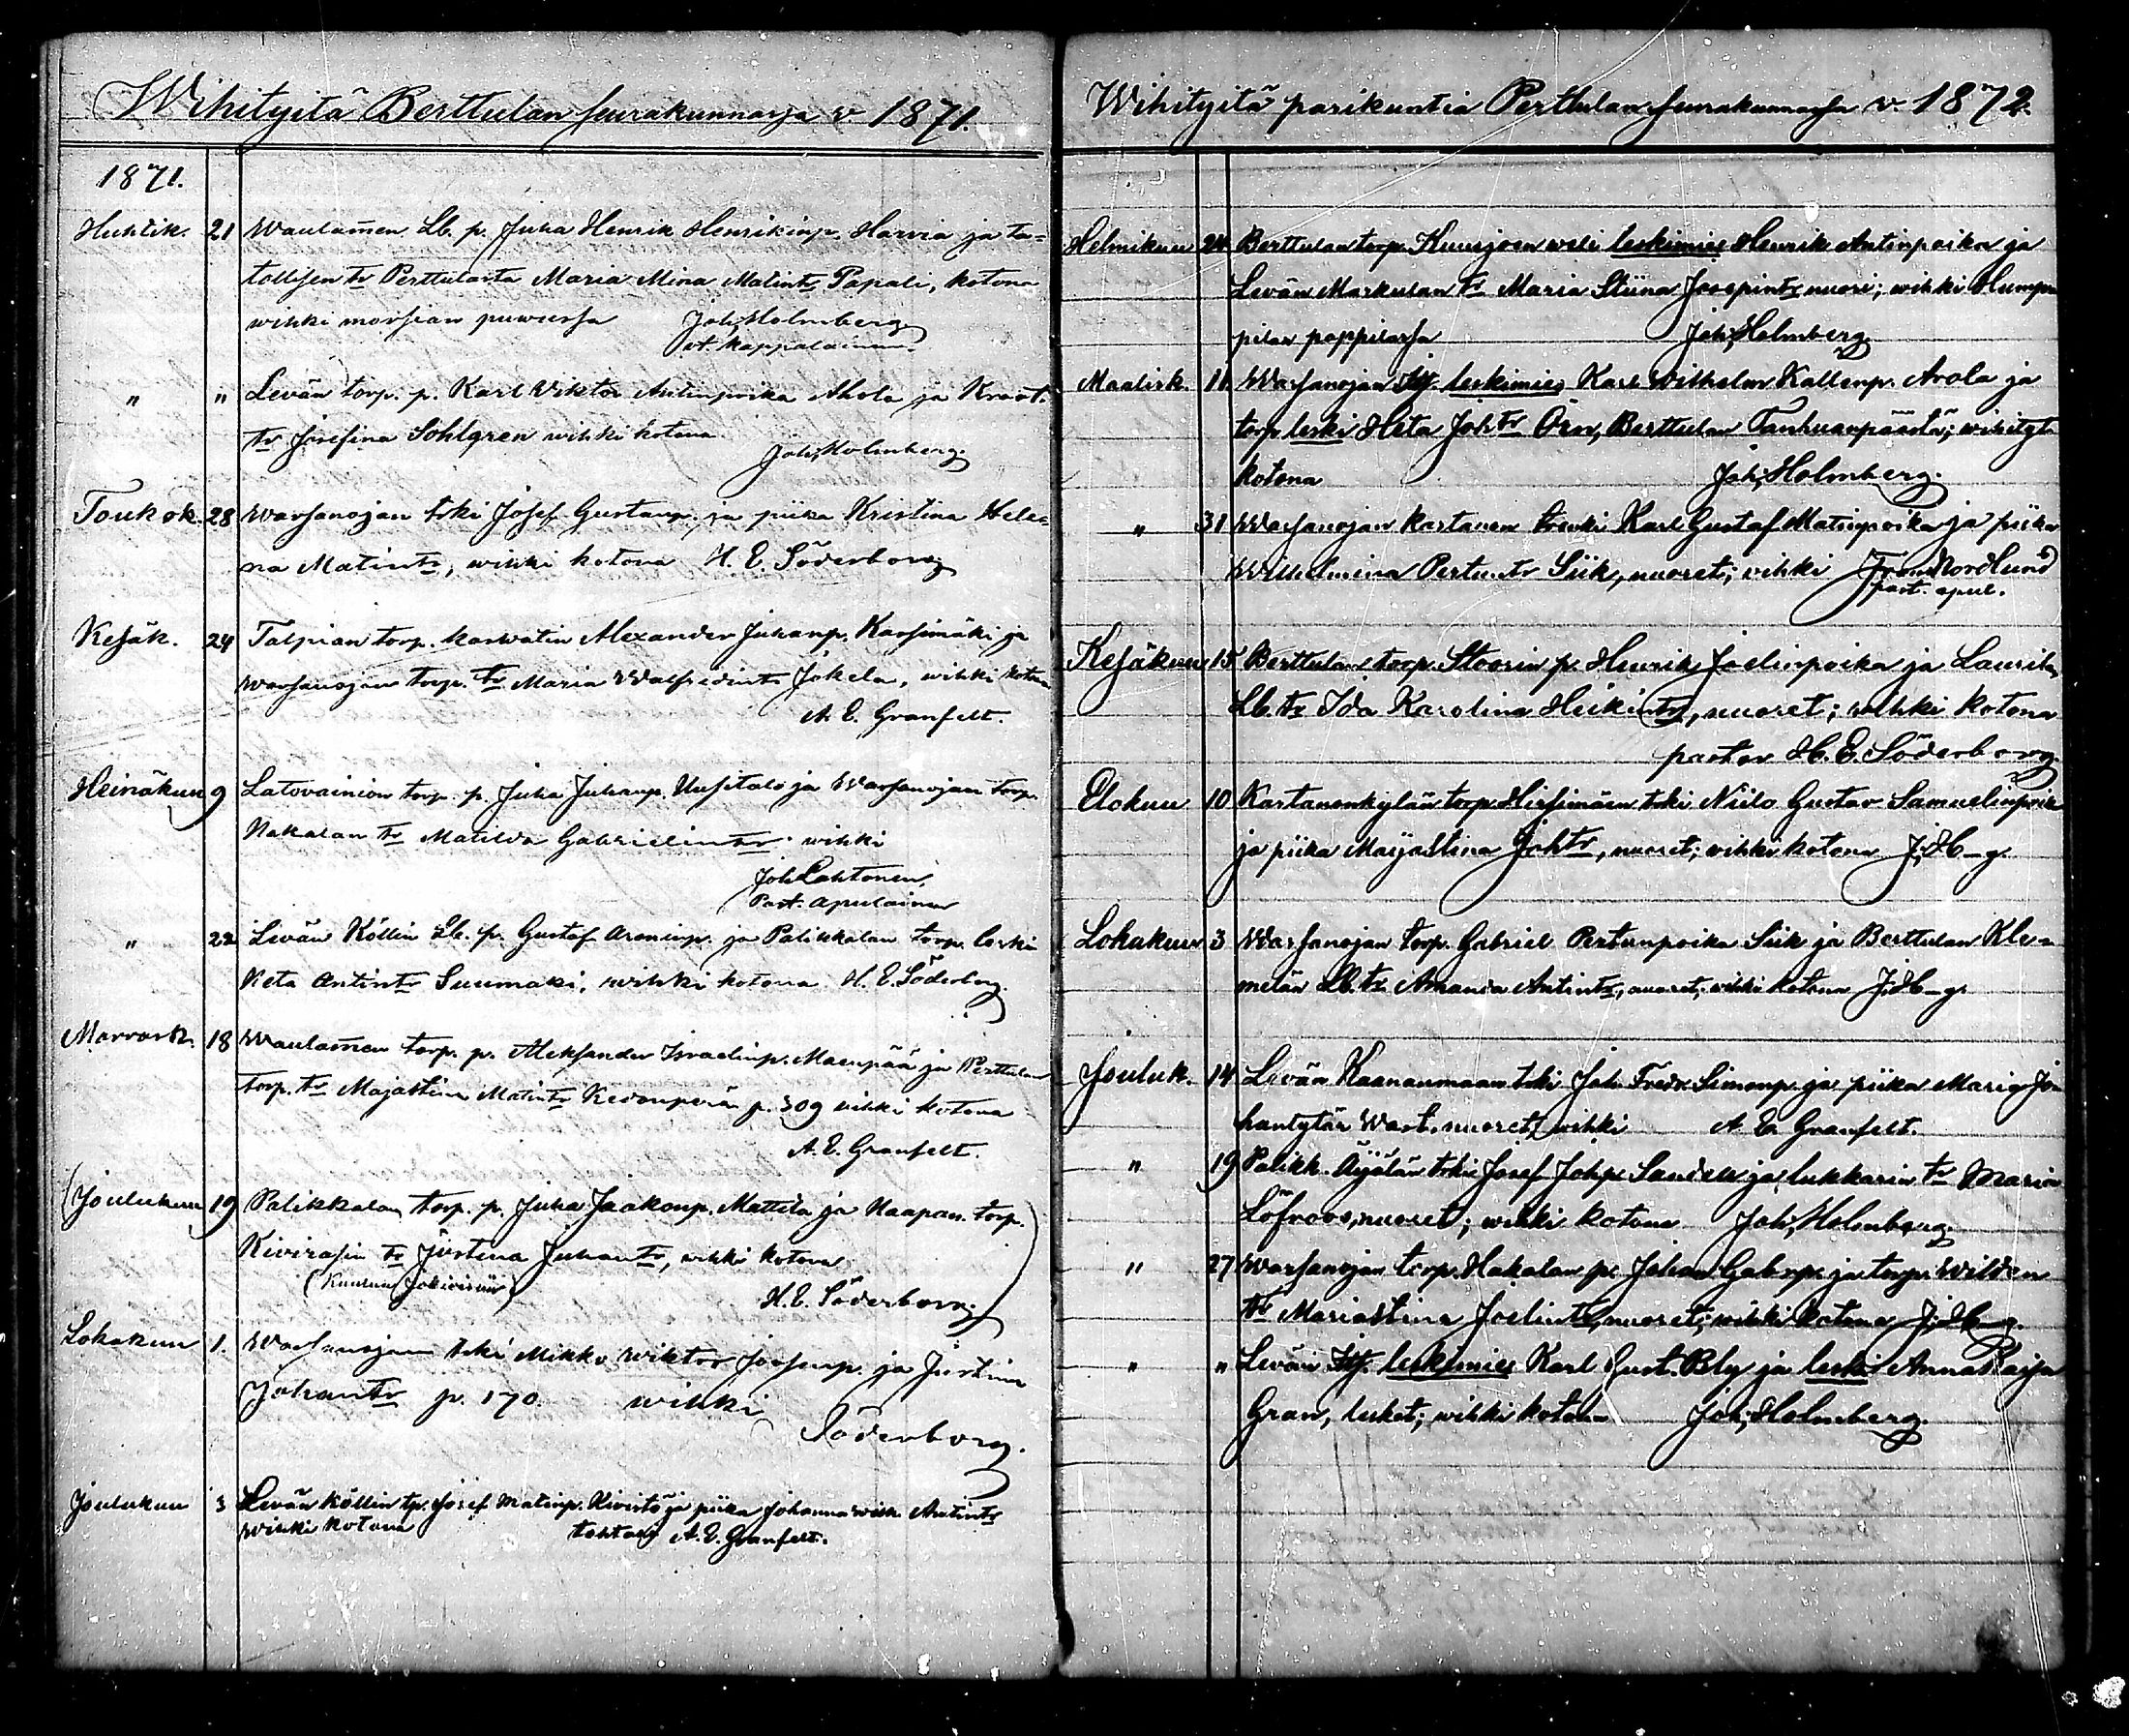 Wihityitä Berttulan seurakunnassa v 1871.
1871.
Huhtik. 21 Waulamen Lb. p. Juha Henrik Henrikinp. Harvia ja ta-
lollisen tr Perttulasta Maria Mina Matintr Papali, kotona
wihki morsian puwussa Joh. Holmberg.
vt. kappalainen.
" " Levän torp. p. Karl Viktor Antinpoika Ahola ja Kraat.
tr Josefina Sohlgren wihki kotona
Joh. Holmberg.
Toukok. 28 Warsanojan trki Josef Gustavp. ja piika Kristina Hele-
na Matintr, wihki kotona H. E. Söderborg
Kesäk. 24 Talpian torp. karwatin Alexander Juhanp. Karsimäki ja
Warsanojan torp. tr Maria Walfredintr Jokela, wihki kotona
A. E. Granfelt.
Heinäkuu 9 Latovainion torp. p. Juha Juhanp. Uusitalo ja Warsanojan torp.
Hakalan tr Matilda Gabrielintr wihki
Joh Lahtonen,
Past. apulainen
" 22 Levän Köllin Lb. p. Gustaf Aroninp. ja Palikkalan torp. leski
Keta Antintr Suumaki, wihki kotona H. E. Söderborg.
Marrask. 18 Waulamen torp. p. Aleksander Israelinp. Maenpää ja Perttulan
torp. tr Majastina Matintr Kedonperän p. 309 vihki kotona
A. E. Granfelt.
(Joulukuu 19 Palikkalan torp. p. Juha Jaakonp. Mattila ja Haapan. torp.
Kivirasin tr Justina Juhantr, wihki kotona
H. E. Söderborg.)
Lokakuu 1. Warsanojan trki Mikko Wiktor Joosenp. ja Justina
Johantr p. 170. wihki
Söderborg.
Joulukuu 3 Levän Köllin tp. Josef Matinp. Kivistö ja piika Johanna Antintr
wihki kotona A. E. Granfelt.
Wihityitä parikuntia Perttulan seurakunnassa v. 1872.
Helmikuu 24 Berttulan torp. Kuusjoen weli leskimies Henrik Antinpoika ja
Levän Markulan tr Maria Stiina Joosepintr nuori; wihki Humpp
pilan pappilassa Joh. Holmberg
Maalisk. 11 Warsanojan Itj. leskimies Karl Wilhelm Kallenp. Arola ja
torp. leski Heta Johtr Örn, Berttulan Tanhuanpäästä; wihityt
kotona Joh. Holmberg.
" 31 Warsanojan kartanon trenki Karl Gustaf Matinpoika ja piika
Wilhelmina Pertuntr Siik, nuoret; vihki Frans Nordlund
past. apul.
Kesäkuu 15 Berttulan torp. Stoorin p. Henrik Joelinpoika ja Laurila
Lb. tr Ida Karolina Heikintr, nuoret; wihki kotona
pastor H. E. Söderborg.
Elokuu 10 Kartanonkylän torp. Hirsimäen trki Niilo Gustav Samuelinpoik
ja piika Maijastina Johtr, nuoret; vihki kotona J. H–g.
Lokakuu 3 Warsanojan torp. Gabriel Pertunpoika Siik ja Berttulan Kle-
metän Lb. tr Amanda Antintr, nuoret, wihki kotona J. H–g.
Jouluk. 14 Levän Kaananmaan trki Joh. Fredr. Simonp. ja piika Maria Jo
hantytär Wast, nuoret, wihki A. E. Granfelt.
" 19 Palikk. Äijälän trki Josef Johp. Sandell ja lukkarin tr Maria
Löfroos, nuoret; wihki kotona Joh. Holmberg
" 27 Warsanojan torp. Hakalan p. Johan Gabrp. ja torp. Wilden
tr Mariastina Joelintr, nuoret; wihki kotona J. H–g.
" " Levän Itj. leskimies Karl Gust. Bly ja leski Anna Kaija
Gran, lesket; wihki kotona Joh. Holmberg.